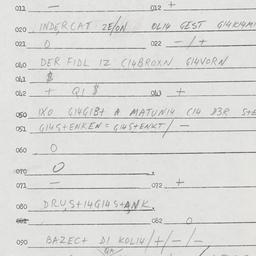 011 — 012 +
020 INDERCAT ZE/ON OLI4 GEST GI4KI4MI
021 O 022 — / +
040 DER FIDL IZ CI4BROXN GI4VORN
041 $
042 + QI $ 043 +
050 IXO GI4GIBT A MATUNI4 CI4 D3R STE
051 GI4S+ENKEN = GI4S+ENKT / —
060 O
070 O
071 — 072 +
080 DRU,S+I4GI4S+ANK
081
082 O
090 BAZEC+ DI KOLI4 / + / — / —